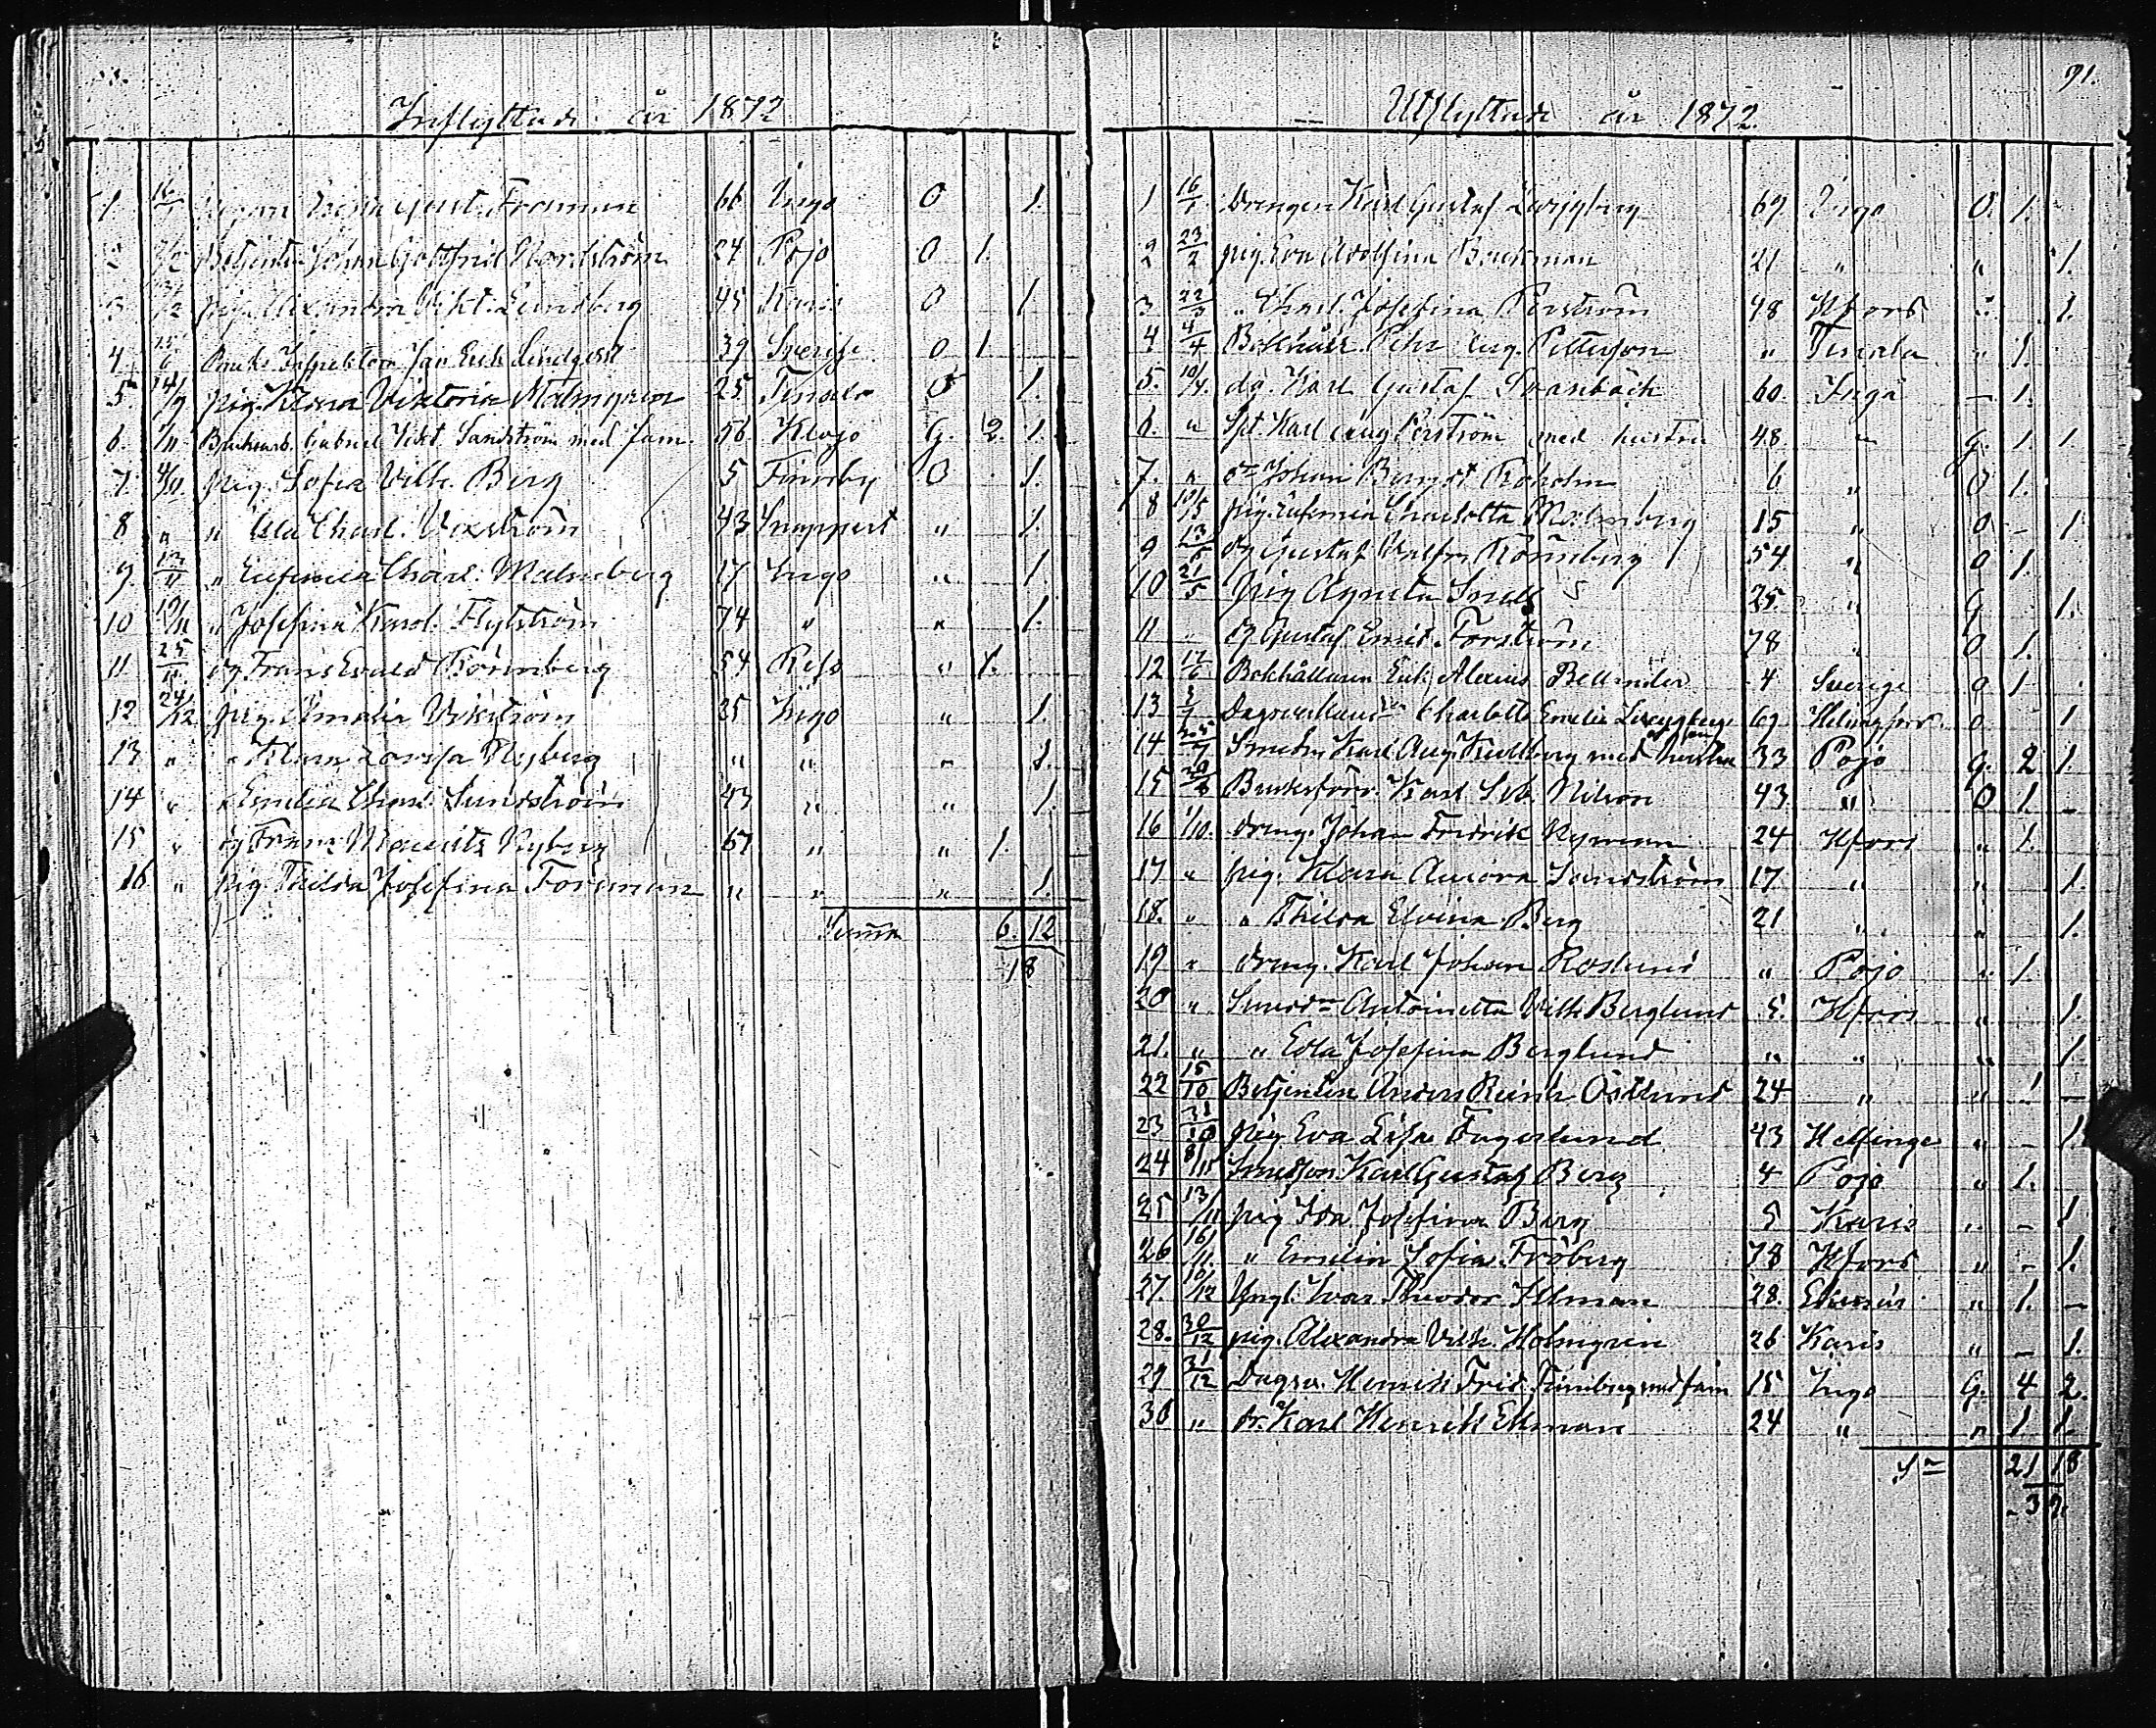 Inflyttade år 1872
1 16/1 pigan Gust. Froman 66 Ingo O 1.
2 Betjenten Johan Gottfrid Nordström 24 Pojo O 1.
3 pig. Alexandra Vikt. Lundberg 45 Karis O 1
4 15/6 Bruks Inspektoren Jan Erik Lindqvist 39 Sverige O 1
5 14/9 pig. Klara Viktoria Malmgren 25 Tenala O 1.
6. /11 Gabriel Vikt. Sandström med fam. 56 Kloyo G. 2. 1.
7. 4/11 pig. Sofia Vilh. Berg 5 Finnby O 1.
8 " " Charl. Vexström 43 Snappert " 1.
9. 12/11 " Eufemia Charl. Malmberg 17 Ingo " 1.
10 19/11 " Josefina Karol. Flytström 74 " " 1.
11 25/11 dg Frans Evald Rönnberg 54 Kisko " 1.
12 24/12 pig. Amalia Vikström 25 Ingo " 1.
13. " " Lovisa Nyberg " " " 1.
14 " " Emelia Charl. Sundström 43 " " 1.
15 " dg Frans Mauritz Nyberg 67 " " 1
16 " pig Thilda Josefina Forsman " " " 1.
Summa 6. 12
18
91.
Utflyttade år 1872
1 16/1 Drengen Karl Gustaf 69 Ingo O. 1.
2 23/2 pig. Eva Adolfina Backman 21 " " 1.
3 22/3 " Charl. Josefina Perström 48 Hfors " 1.
4 4/4 Bokhåll. Pehr Aug. Petterson " Tenala " 1.
5. 10/4 dg. Karl Gustaf Svanbäck 60. Ingå - 1.
6. " Spt Karl Aug Perström med hustru 48 " g. 1. 1.
7. " Johan Bengt Roholm 6 " O 1.
8 10/5 pig. Eufemia Charlotta Malmberg 15 " O - 1
9 13/5 dg Gustaf Rönnberg 54 " O 1.
10 21/5 pig Agneta Snell 25. " G 1.
11 " dg. Gustaf Emil Forström 78 " O 1.
12 17/6 Bokhållaren Erik Alexius Bellander 4 Sverige O 1
13 3/7 Charlotta Emelia 69 Helsingfors O 1
14 Smeden Karl Aug. Kullberg med hustru 33 Pojo g. 2 1.
15 Karl Nilson 43 " O 1. -
16 1/10. dreng. Johan Fredrik Nyman 24 Hfors " 1.
17 " pig. Klara Aurora Sandström 17 " " 1.
18. " " Thilda Elvina Berg 21 " " 1.
19 " dreng. Karl Johan Roslund " Pojo " 1.
20 " Antoinetta Vilh Berglund 5. Hfors " 1.
21. " " Eda Josefina Berglund " " " 1.
22 15/10 Betjenten Anders Reinh. Östlund 24 " " 1 -
23 31/10 pig Eva Lisa Fagerlund 43 Helsinge " - 1
24 8/11 Smedson Karl Gustaf Berg 4 Pojo " 1.
25 13/11 pig Ida Josefina Berg 5 Karis " - 1
26 16/11. " Emilia Sofia Fröberg 78 Hfors " - 1.
27. 10/12 Yngl. Ivar Theodor Illman 28. Ekenäs " 1. -
28. 30/12 pig. Alexandra Vilh. Holmgren 26 Karis " - 1.
29 31/12 Dagsv. Henrik Frid. Finnberg med fam 15 Ingo G. 4 2.
30 " dr. Karl Henrik Ekman 24 " " 1 1.
Sa 21 18
39.